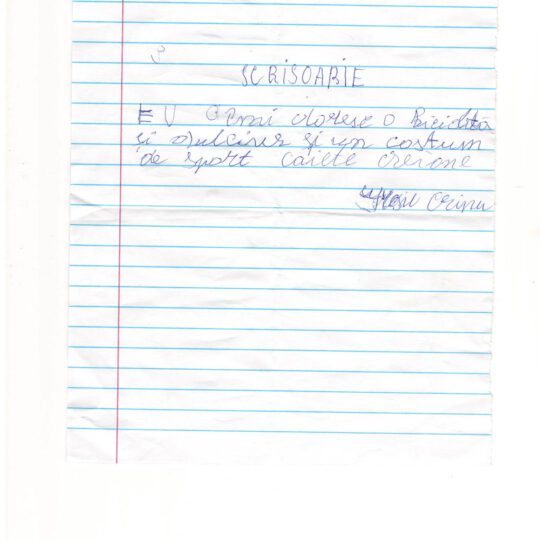 SCRISOARIE
EU îmi doresc o Bicicleta
si dulciur și un costum
de sport caiete creione